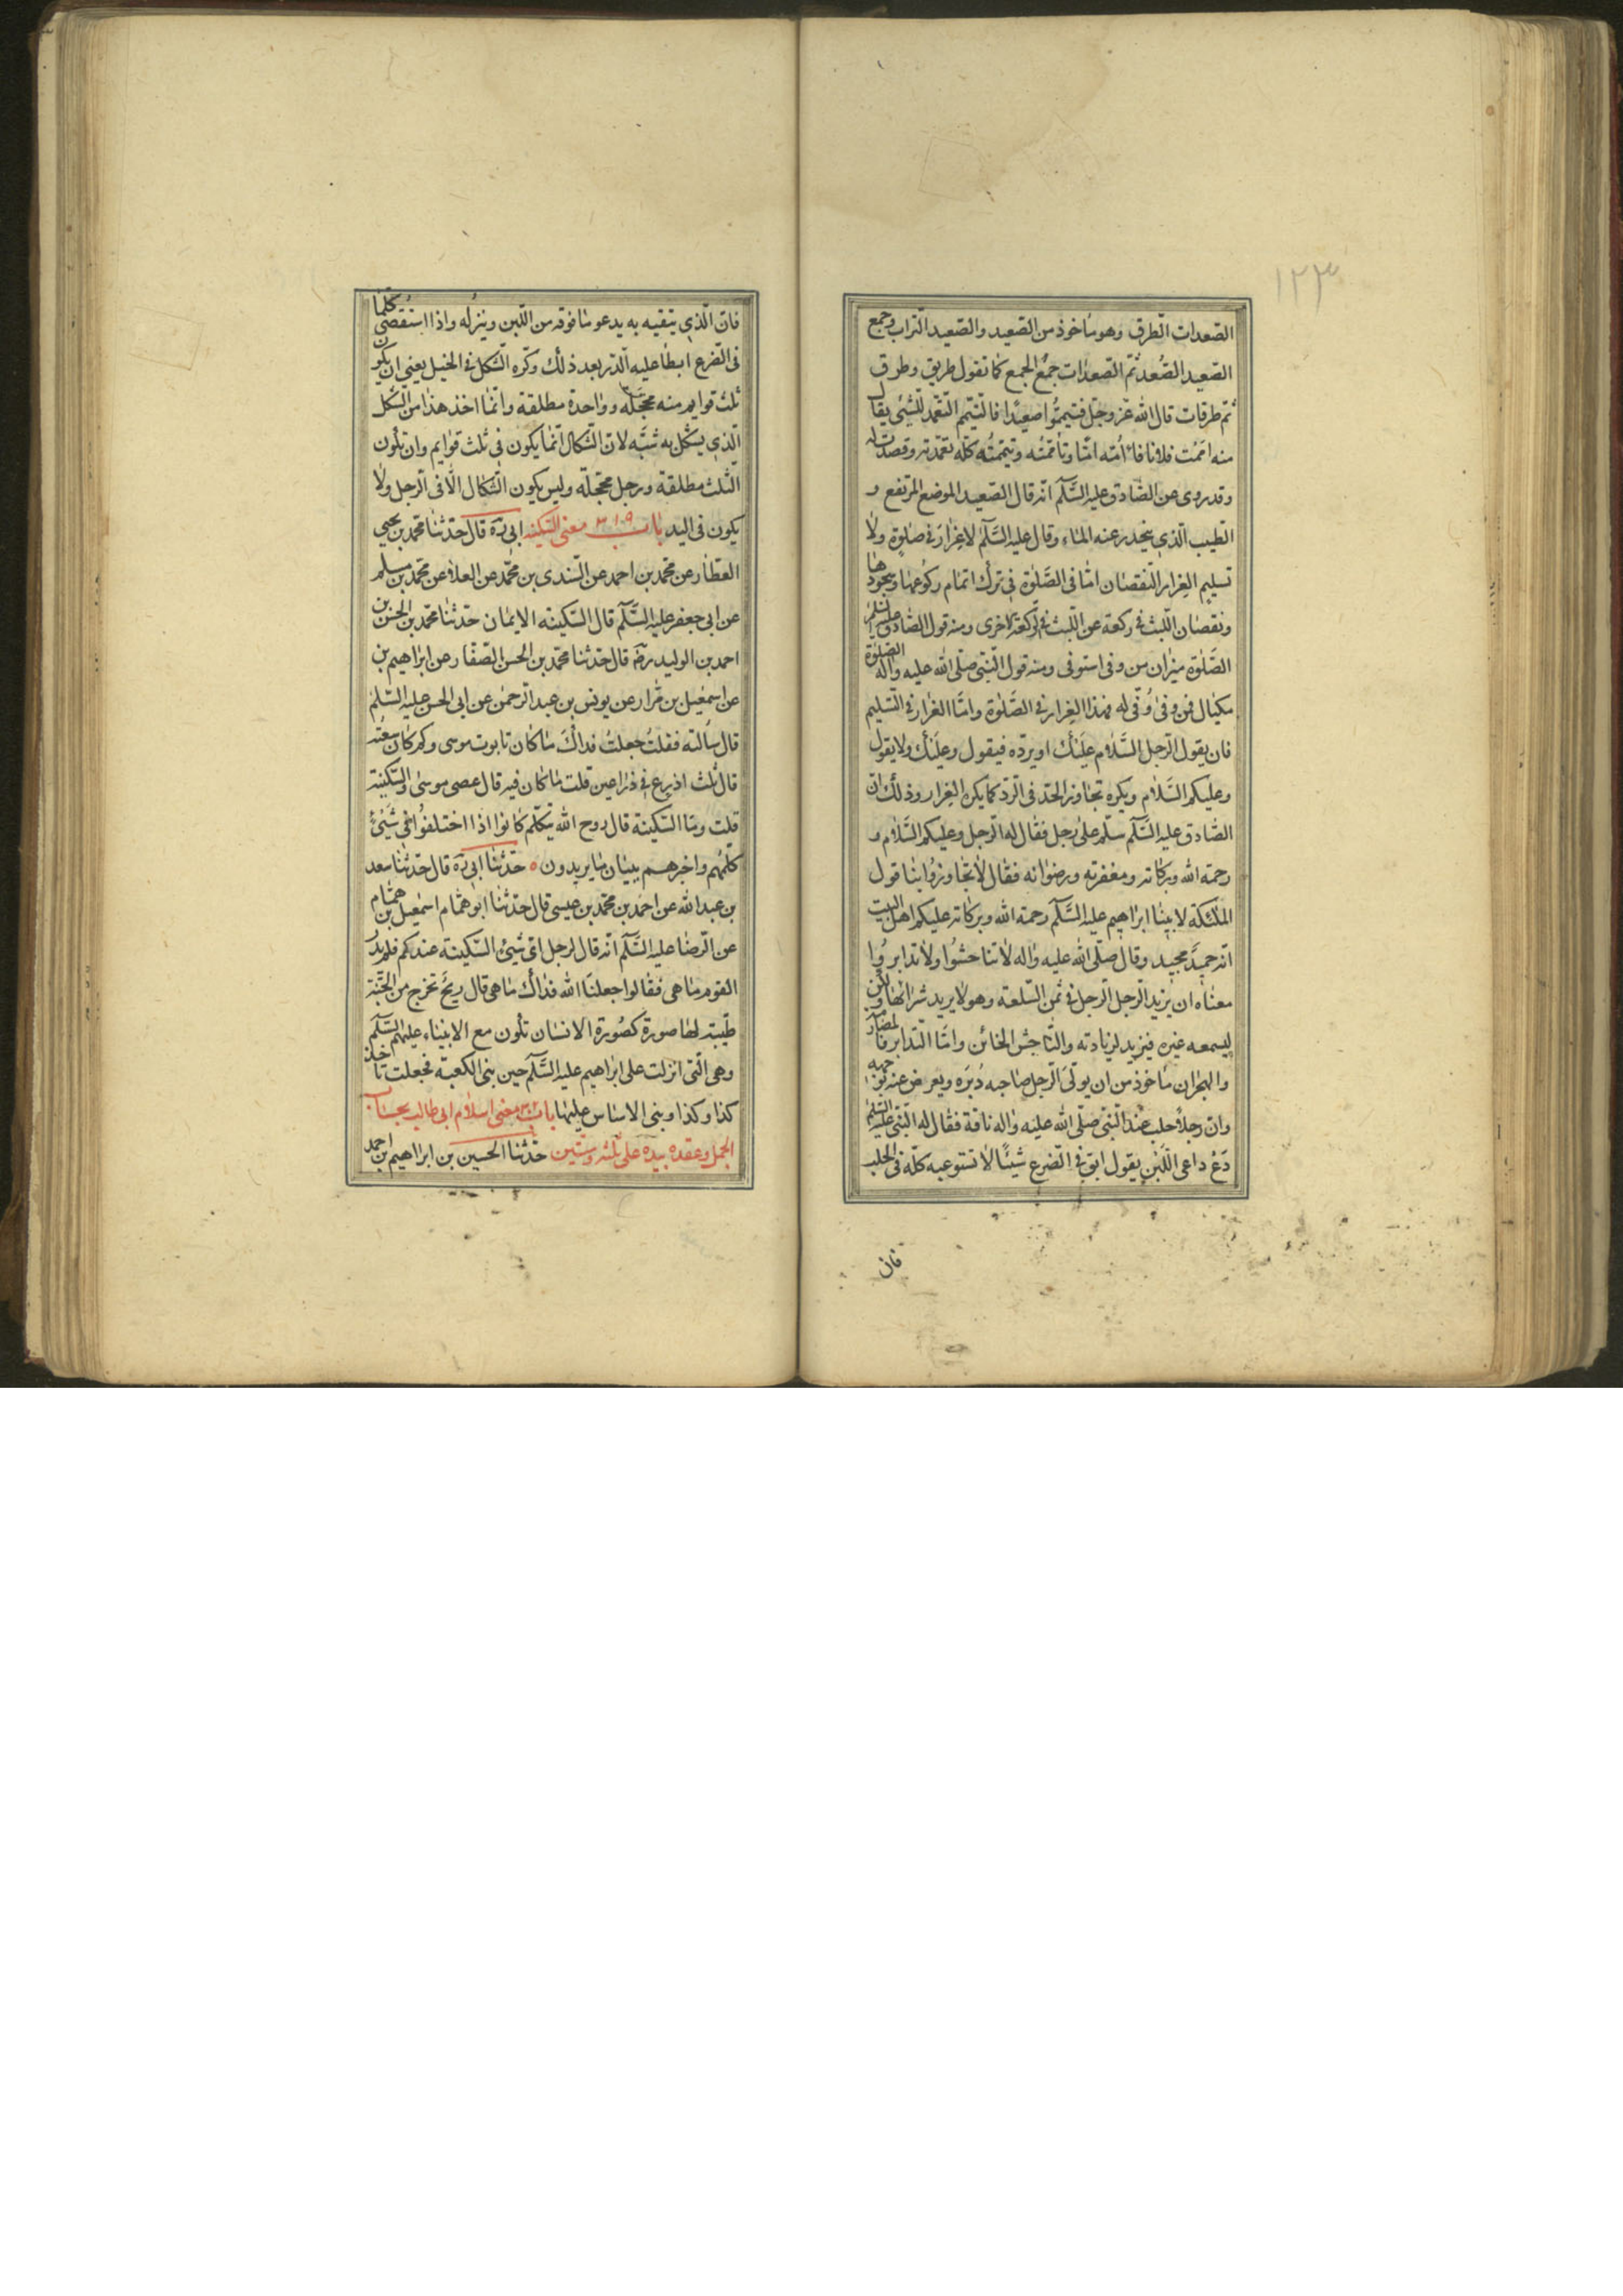 ١٢٣
الصعدات الطرق وهو ماخوذ من الصعيد والصعيد التراب وجمع
الصعيد الصُعد ثمّ الصعدات جمع الجمع كما تقول طريق وطرق
ثم طرقات قال الله عزوجلّ فتيمموا صعيدًا فالتيمم التعمد للشئ يقال
منه اممت فلانا فانا امّه امّا وتاممته وتيممته كلّه تعمدته وقصدت له
وقد روى عن الصّادق عليه السّلم انّه قال الصعيد الموضع المرتفع و
الطيب الّذي ينحدر عنه الماء وقال عليه السّلم لا غرار في صلوة ولا
تسليم الغرار النقصان امّا فى الصّلوة في ترك اتمام ركوعها وسجودها
ونقصان اللبث في ركعة عن اللبث في الركعة الاخرى ومنه قول الصّادق عليه السّلم
الصّلوة ميزان من وفى استوفى ومنه قول النّبى صلّى الله عليه واله الصّلوة
مكيال فمن وفى وُفّى له فهذا الغرار في الصّلوة وامّا الغرار في التسليم
فان يقول الرّجل السّلام عليك او يردّه فيقول وعليك ولا يقول
وعليكم السّلام ويكره تجاوز الحدّ فى الردّ كما يكره الغرار وذلك انّ
الصّادق عليه السّلم سلّم على رجل فقال له الرّجل وعليكم السّلام و
رحمة الله وبركاته ومغفرته ورضوانه فقال لا تجاوزوا بنا قول
الملئكة لابينا ابراهيم عليه السّلم رحمة الله وبركاته عليكم اهل البيت
انه حميد مجيد وقال صلّى الله عليه واله لا تناجشوا ولا تدابروا
معناه ان يزيد الرّجل الرّجل في ثمن السّلعة وهو لا يريد شرائها ولكن
ليسمعه غيره فيزيد لزيادته والنّاجش الخائن وامّا التّدابر فالمصارمة
والهجران ماخوذ من ان يولّى الرّجل صاحبه دُبَره ويعرض عنه بوجهه
وانّ رجلا حلب عند النّبى صلّى الله عليه واله ناقة فقال له النّبى عليه السّلم
دَعْ داعى اللّبن يقول ابق في الضّرع شيئًا لا تستوعبه كلّه فى الحلب
فان
فانّ الّذي يتقيه به يدعو ما فوقه من اللّبن وينزله واذا استقصى كلّما
فى الضّرع ابطا عليه الدّر بعد ذلك وكره الشكل في الخيل يعني ان يكون
ثلث قوايم منه محجّلة وواحدة مطلقة وانّما اخذ هذا من الشكل
الّذي يشكل به شبّه لانّ الشّكال انّما يكون في ثلث قوايم وان تكون
الثلث مطلقة ورجل محجّلة وليس يكون الشّكال الّا فى الرّجل ولا
يكون فى اليد باب ٣١٩ معنى السّكينه ابي ره قال حدّثنا محمّد بن يحيى
العطّار عن محمّد بن احمد عن السّندى بن محمّد عن العلاء عن محمّد بن مسلم
عن ابى جعفر عليه السّلم قال السّكينه الايمان حدّثنا محمّد بن الحسن بن
احمد بن الوليد رضه قال حدّثنا محمّد بن الحسن الصفّار عن ابراهيم بن
عن اسمعيل بن مرّار عن يونس بن عبد الرّحمن عن ابى الحسن عليه السّلم
قال سألته فقلت جعلت فداك ما كان تابوت موسى وكم كان سعته
قال ثلث اذرع في ذراعين قلت ما كان فيه قال عصى موسى والسّكينة
قلت وما السّكينة قال روح الله يتكلّم كانوا اذا اختلفوا في شيئ
كلّمهم واخبرهم ببيان ما يريدون ه حدّثنا ابي ره قال حدّثنا سعد
بن عبد الله عن احمد بن محمّد بن عيسى قال حدّثنا ابو همّام اسمعيل بن همّام
عن الرّضا عليه السّلم انّه قال لرجل ائ شيئ السّكينة عندكم فلم يدر
القوم ما هى فقالوا جعلنا الله فداك ما هى قال ريح تخرج من الجنّة
طيّبة لها صورة كصورة الانسان تكون مع الانبياء عليهم السّلم
وهى الّتى انزلت على ابراهيم عليه السّلم حين بنى الكعبة فجعلت تاخذ
كذا وكذا وبنى الاساس عليها باب معنى اسلام ابى طالب بحساب
الجمل وعقده بيده على ثلثه وستّين حدّثنا الحسين بن ابراهيم بن احمد